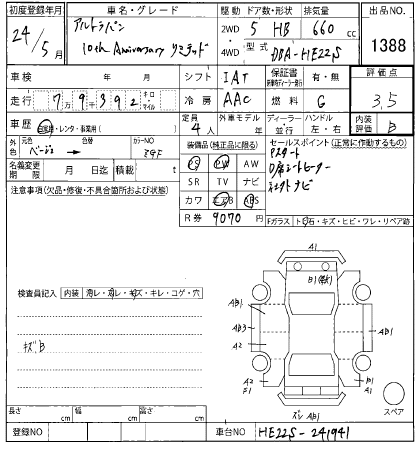 初度登録年月
車名・グレード
駆動 ドア数・形状 排気量
出品NO.
24/5月
アルトラパン
10th Anniversary リミテッド
2WD 5 HB 660 cc
4WD 型式 DBA-HE22S
1388
車検 年 月
シフト IAT
保証書 有・無
評価点
走行 7万9千392 キロ・マイル
冷房 AAC
燃料 G
3.5
車歴 自家用・レンタ・事業用( )
定員 4人
外車モデル 年
ディーラー 並行
ハンドル 左・右
内装評価 B
外色 元色 ベージュ → 色替
カラーNO
装備品(純正品に限る)
セールスポイント(正常に作動するもの)
Pスタート
D席シートヒーター
名義変更期限 月 日迄
積載 t
PS PW AW
注意事項(欠品・修復・不具合箇所および状態)
SR TV ナビ
カワ エアB ABS
R券 9070 円
Fガラス トビ石・キズ・ヒビ・ワレ・リペア跡
A1
検査員記入 内装 ヨレ・スレ・キズ・キレ・コゲ・穴
AB1
AB3
A2
AB1
キズB
A2
B1
A1
AB1
スペア
長さ cm 幅 cm 高さ cm
登録NO
車台NO HE22S-241941